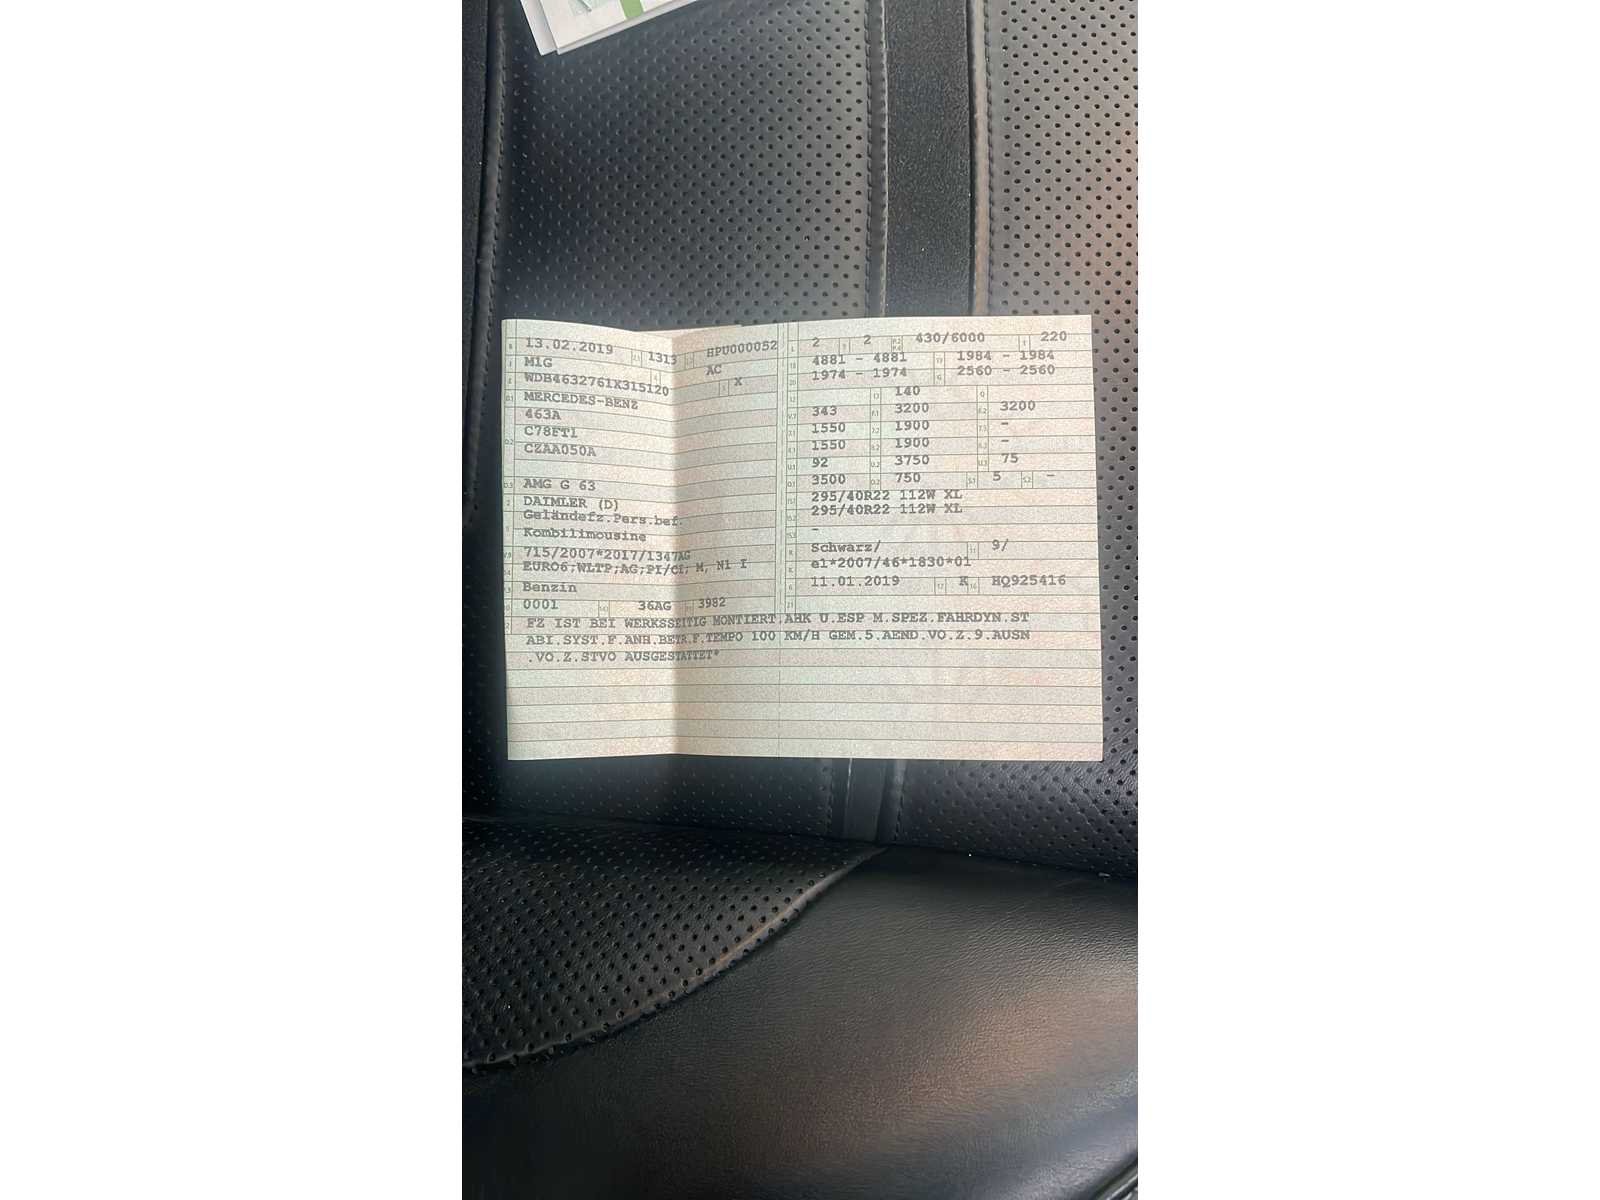 13.02.2019 1313 HPU000052
M1G AC
WDB4632761X315120 X
MERCEDES-BENZ
463A
C78FT1
CZAA050A
AMG G 63
DAIMLER (D)
Geländefz.Pers.bef.
Kombilimousine
715/2007*2017/1347AG
EURO6;WLTP;AG;PI/CI; M, N1 I
Benzin
0001 36AG 3982
2 2 430/6000 220
4881 - 4881 1984 - 1984
1974 - 1974 2560 - 2560
140
343 3200 3200
1550 1900 -
1550 1900 -
92 3750 75
3500 750 5 -
295/40R22 112W XL
295/40R22 112W XL
-
Schwarz/ 9/
e1*2007/46*1830*01
11.01.2019 K HQ925416
FZ IST BEI WERKSSEITIG MONTIERT.AHK U.ESP M.SPEZ.FAHRDYN.ST
ABI.SYST.F.ANH.BETR.F.TEMPO 100 KM/H GEM.5.AEND.VO.Z.9.AUSN
.VO.Z.STVO AUSGESTATTET*